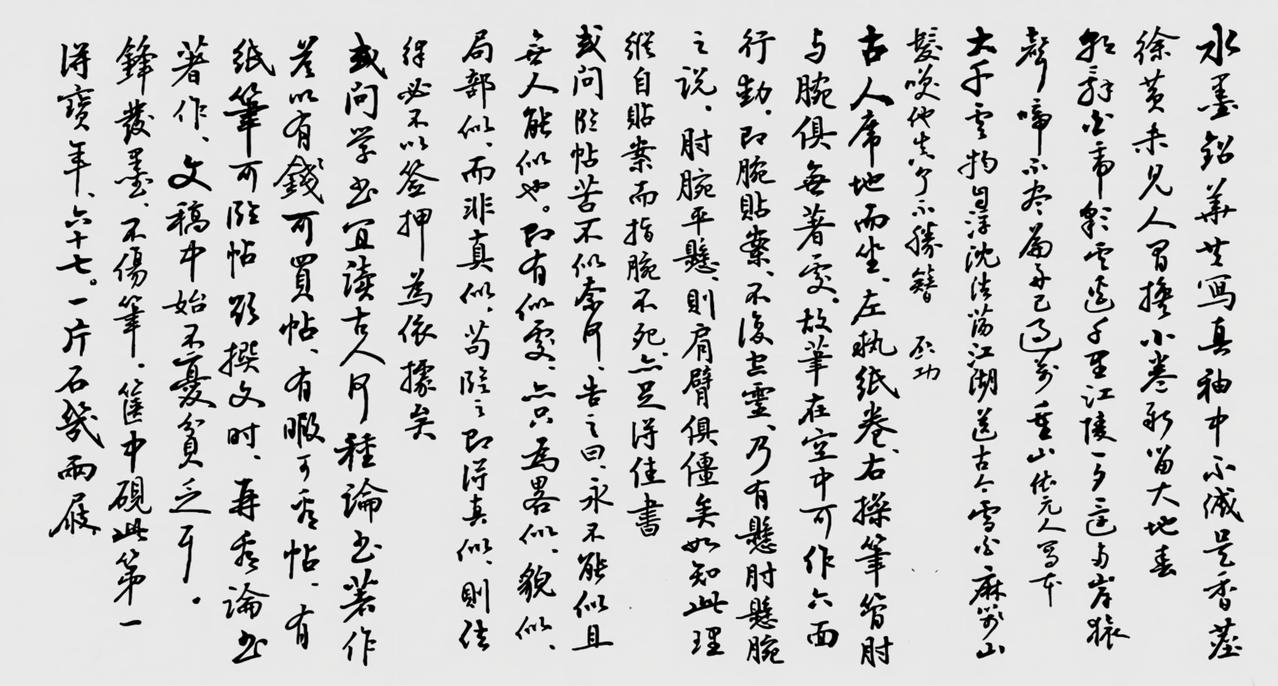 水墨鉛華共寫真袖中不減是香塵
徐黃未見人間小卷新留大地春
朝辞白帝彩雲邊千里江陵一夕還岸猿
聲啼不尽扁舟已过萬重山依元人寫本
大千雲物自浮沈浩蕩江湖送古今雪白麻山
髮咲他不勝簪 啟功
古人席地而坐、左执紙卷、右操筆管肘
与腕俱無著處、故筆在空中可作六面
行動。即腕貼案、不復空靈、乃有懸肘懸腕
之说。肘腕平懸、則肩臂俱僵矣如知此理
縱自貼案而指腕不死亦足得佳書
或问臨帖苦不似奈何、告之曰、永不能似且
無人能似也。即有似處、亦只為畧似、貌似、
局部似、而非真似、苟臨之即得真似、則法
律必不以签押為依據矣
或问学书宜读古人何種論书著作
答以有錢可買帖、有暇可看帖、有
紙筆可臨帖欲撰文时、再看論书
著作、文稿中始不憂貧乏耳。
鋒發墨、不傷筆。篋中硯此第一
得寶年、六十七。一片石幾兩屐